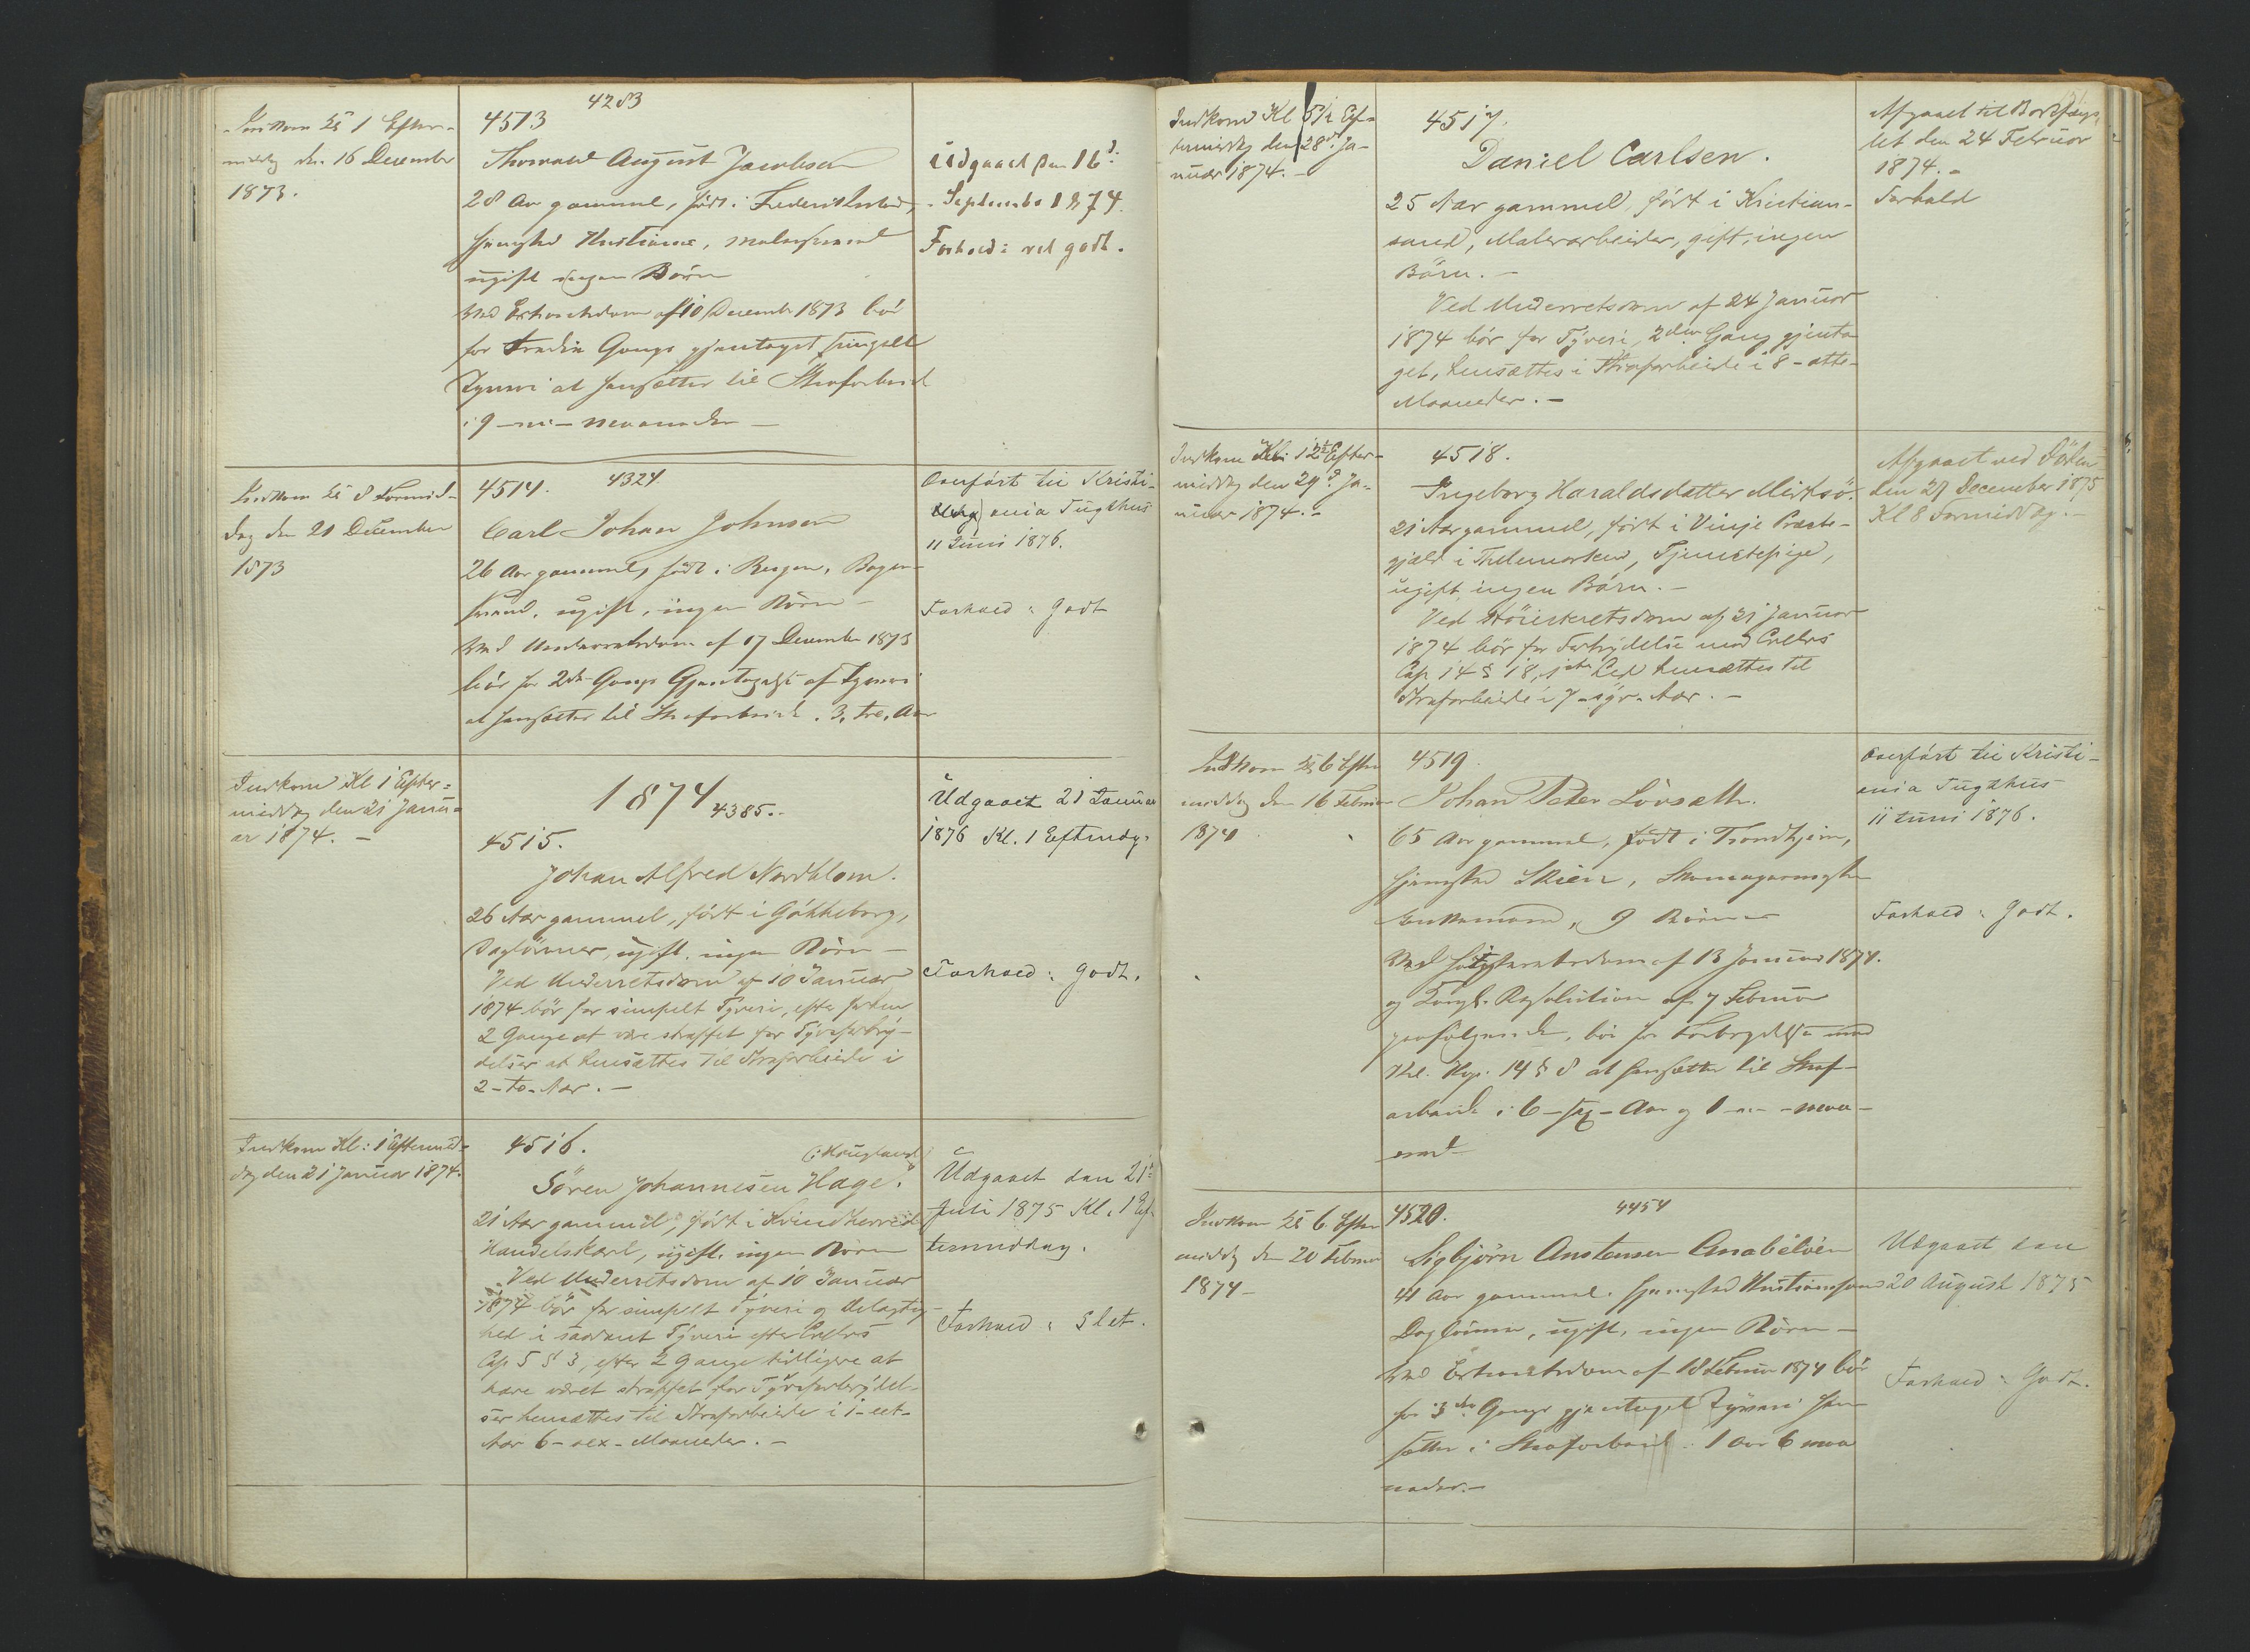 4283
Indkom Kl 1 Efter-
middag den 16 December
1873.
4513
Thorvald August Jacobsen
28 Aar gammel, født i Frederikstad,
hjemsted Kristiania, malersvend
ugift ingen Børn
Ved Extraretsdom af 10 December 1873 bör
for tredie Gangs gjentaget simpelt
Tyveri at hensættes til Strafarbeid
i 9 - ni - Maaneder -
Udgaaet den 16d:
September 1874.
Forhold: vel godt.
Indkom Kl 8 Formid-
dag den 20 December
1873
4514. 4324
Carl Johan Johnsen
26 Aar gammel, født i Bergen,
ugift, ingen Børn -
Ved Underretsdom af 17 December 1873
bör for 2den Gangs Gjentagelse af Tyveri
at hensættes til Strafarbeide i 3, tre, Aar
Overført til Kristi-
ania Tugthus
11 Juni 1876.
Forhold: Godt
Indkom Kl 1 Efter-
middag den 21 Janu-
ar 1874. -
1874
4385.
4515.
Johan Alfred Nordblom.
26 Aar gammel, født i Gøtheborg,
Daglønner, ugift, ingen Børn -
Ved Underretsdom af 10 Januar
1874 bör for simpelt Tyveri, efter forhen
2 Gange at være straffet for Tyvsforbry-
delser at hensættes til Strafarbeide i
2 - to - Aar. -
Udgaaet 21 Januar
1876 Kl. 1 Eftmdg.
Forhold: godt.
Indkom Kl: 1 Eftermid-
dag den 21 Januar 1874.
4516.
(: Haugland
Sören Johannesen Hage.
21 Aar gammel, født i Kvindherred
Handelskarl, ugift. ingen Børn
Ved Underretsdom af 10 Januar
1874 bör for simpelt Tyveri og Delagtig-
hed i saadant Tyveri efter Crllvs
Cap 5 § 3, efter 2 Gange tidligere at
have været straffet for Tyvsforbrydel-
ser hensættes til Strafarbeide i 1 - eet -
Aar 6 - sex - Maaneder. -
Udgaaet den 21d:
Juli 1875 Kl. 1 Ef-
termiddag.
Forhold: Slet.
Indkom Kl 5½ Ef-
termiddag den 28d. Ja-
nuar 1874. -
4517.
Daniel Carlsen.
25 Aar gammel, født i Kristian-
sund, Malerarbeider, gift, ingen
Børn. -
Ved Underretsdom af 24 Januar
1874 bör for Tyveri, 2den Gang gjenta
get, hensættes i Strafarbeide i 8 - otte -
Maaneder. -
Afgaaet til Bodsfæng-
let den 24 Februar
1874. -
Forhold
Indkom Kl: 12½ Efter-
middag den 29d. Ja-
nuar 1874. -
4518.
Ingeborg Haraldsdatter
21 Aar gammel, født i Vinje Præste-
gjæld i Thelemarken, Tjenestepige,
ugift, ingen Børn. -
Ved Höiesteretsdom af 21 Januar
1874 bör for Forbrydelse mod Crllvs
Cap 14 § 18, 1ste Led hensættes til
Strafarbeide i 7 - syv - Aar. -
Afgaaet ved Döden
den 27 December 1875
Kl 8 Formiddag. -
Indkom Kl 6 Efter
middag den 16 Februar
1874
4519
Johan Peter Lövseth.
65 Aar gammel, født i Trondhjem,
hjemsted Skien, Skomagermester
Enkemand, 9 Børn -
Ved Höiesteretsdom af 13 Januar 1874.
og Kongl. Resolution af 7 Februar
paafølgende, bör for Forbrydelse mod
Krl. Kap. 14 § 8 at hensættes til Straf-
arbeide i 6 - sex - Aar og 1 - en - Maa-
ned
Overført til Kristi-
ania Tugthus
11 Juni 1876.
Forhold: Godt.
Indkom Kl 6 Efter
middag den 20 Februar
1874 -
4520. 4454
Sigbjörn Anstensen
41 Aar gammel. hjemsted Kristianssand
Daglønner, ugift, ingen Børn -
Ved Extraretsdom af 18 Februar 1874 bör
for 3die Gangs gjentaget Tyveri hen
sættes i Strafarbeid i 1 Aar 6 Maa
neder. -
Udgaaet den
20 August 1875
Forhold: Godt.